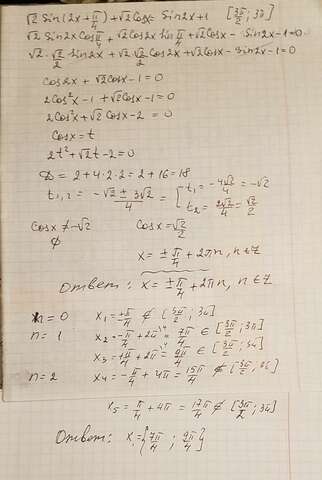 √2 Sin(2x + π/4) + √2 Cosx = Sin2x + 1 [3π/2 ; 3π]
√2 Sin2x Cos π/4 + √2 Cos2x Sin π/4 + √2 Cosx - Sin2x - 1 = 0
√2 · √2/2 Sin2x + √2 · √2/2 Cos2x + √2 Cosx - Sin2x - 1 = 0
Cos2x + √2 Cosx - 1 = 0
2Cos²x - 1 + √2 Cosx - 1 = 0
2Cos²x + √2 Cosx - 2 = 0
Cosx = t
2t² + √2 t - 2 = 0
D = 2 + 4·2·2 = 2 + 16 = 18
t₁,₂ = (-√2 ± 3√2)/4 = [ t₁ = -4√2/4 = -√2
t₂ = 2√2/4 = √2/2
Cosx ≠ -√2 Cosx = √2/2
∅
x = ± π/4 + 2πn, n ∈ Z
Ответ: x = ± π/4 + 2πn, n ∈ Z
n = 0 x₁ = ± π/4 ∉ [3π/2 ; 3π]
n = 1 x₂ = -π/4 + 2π = 7π/4 ∈ [3π/2 ; 3π]
x₃ = +π/4 + 2π = 9π/4 ∈ [3π/2 ; 3π]
n = 2 x₄ = -π/4 + 4π = 15π/4 ∉
x₅ = π/4 + 4π = 17π/4 ∉ [3π/2 ; 3π]
Ответ: x = {7π/4 ; 9π/4}